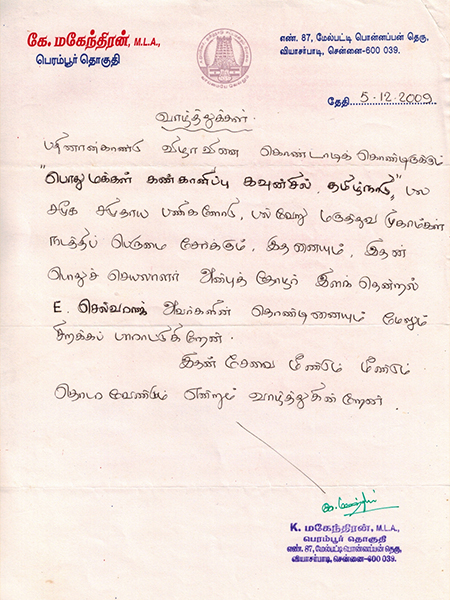 கே. மகேந்திரன், M.L.A.,
பெரம்பூர் தொகுதி
எண். 87, மேல்பட்டி பொன்னப்பன் தெரு,
வியாசர்பாடி, சென்னை-600 039.
தேதி 5-12-2009
வாழ்த்துக்கள்.
பதினான்காண்டு விழாவினை கொண்டாடிக் கொண்டிருக்கும்
"பொதுமக்கள் கண்காணிப்பு கவுன்சில், தமிழ்நாடு", பல
சமூக சமுதாய பணிகளோடு, பல்வேறு மருத்துவ முகாம்கள்
நடத்திப் பெருமை சேர்க்கும், இதனையும், இதன்
பொதுச் செயலாளர் அன்புத் தோழர் இளந் தென்றல்
E. செல்வராஜ் அவர்களின் தொண்டினையும் மேலும்
சிறக்கப் பாராட்டுகிறேன்.
இதன் சேவை மீண்டும் மீண்டும்
தொடர வேண்டும் என்றும் வாழ்த்துகின்றேன்.
K. மகேந்திரன், M.L.A.,
பெரம்பூர் தொகுதி
எண். 87, மேல்பட்டி பொன்னப்பன் தெரு,
வியாசர்பாடி, சென்னை-600 039.